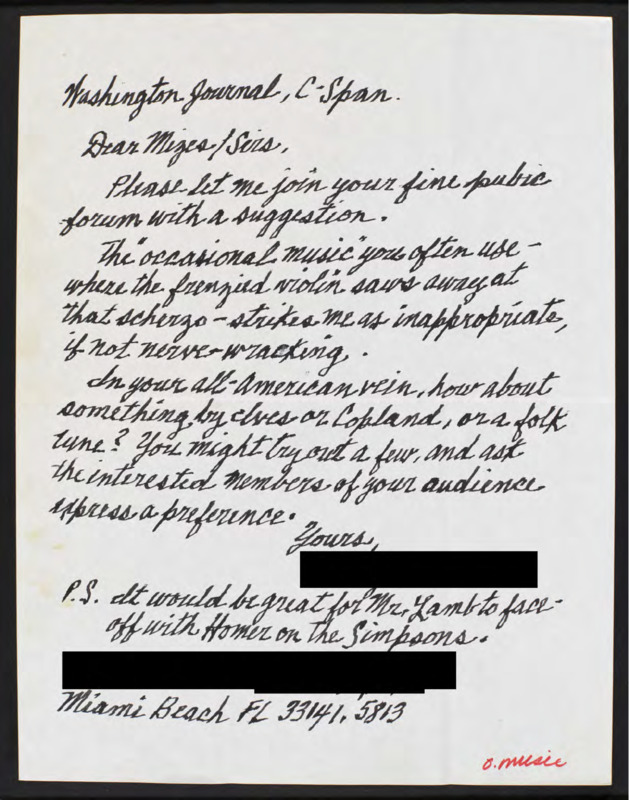 Washington Journal, C-Span.
Dear Mizes/Sirs,
Please let me join your fine pubic
forum with a suggestion.
The "occasional music" you often use -
where the frenzied violin saws away at
that scherzo - strikes me as inappropriate,
if not nerve-wracking.
In your all-American vein, how about
something by Ives or Copland, or a folk
tune? You might try out a few, and ask
the interested members of your audience
express a preference.
Yours,
P.S. It would be great for Mr. Lamb to face-
off with Homer on the Simpsons.
Miami Beach FL 33141.5813
o.music